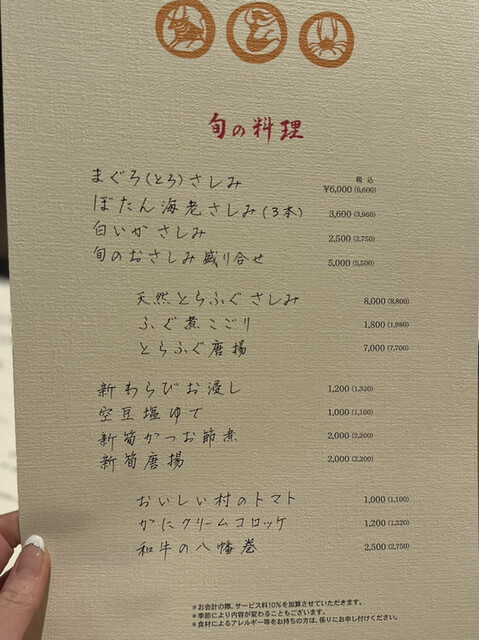 旬の料理
税込
まぐろ(とろ)さしみ ¥6,000(6,600)
ぼたん海老さしみ(3本) 3,600(3,960)
白いかさしみ 2,500(2,750)
旬のおさしみ盛り合せ 5,000(5,500)
天然とらふぐさしみ 8,000(8,800)
ふぐ煮こごり 1,800(1,980)
とらふぐ唐揚 7,000(7,700)
新わらびお浸し 1,200(1,320)
空豆塩ゆで 1,000(1,100)
新筍かつお節煮 2,000(2,200)
新筍唐揚 2,000(2,200)
おいしい村のトマト 1,000(1,100)
かにクリームコロッケ 1,200(1,320)
和牛の八幡巻 2,500(2,750)
※お会計の際、サービス料10%を加算させていただきます。
※季節により内容が変わることもございます。
※食材によるアレルギー等をお持ちの方は、係りにお申し付けください。